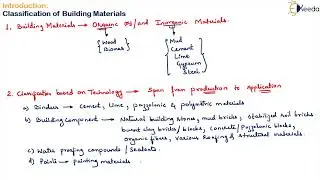 Introduction:
Classification of Building Materials
Keeda
1. Building Materials → Organic or/and Inorganic Materials.
{ Wood
{ Mud
Cement
Lime
Gypsum
Steel }
2. Classification based on Technology → Span from production to application
a) Binders → Cement, lime, pozzolanic & polymeric materials
b) Building Component → Natural building stones, mud bricks, stabilized soil bricks
burnt clay bricks/blocks, Concrete/Pozzolanic blocks,
organic fibers, various Roofing & structural materials.
c) Water proofing compounds / Sealants.
d) Paints → painting materials